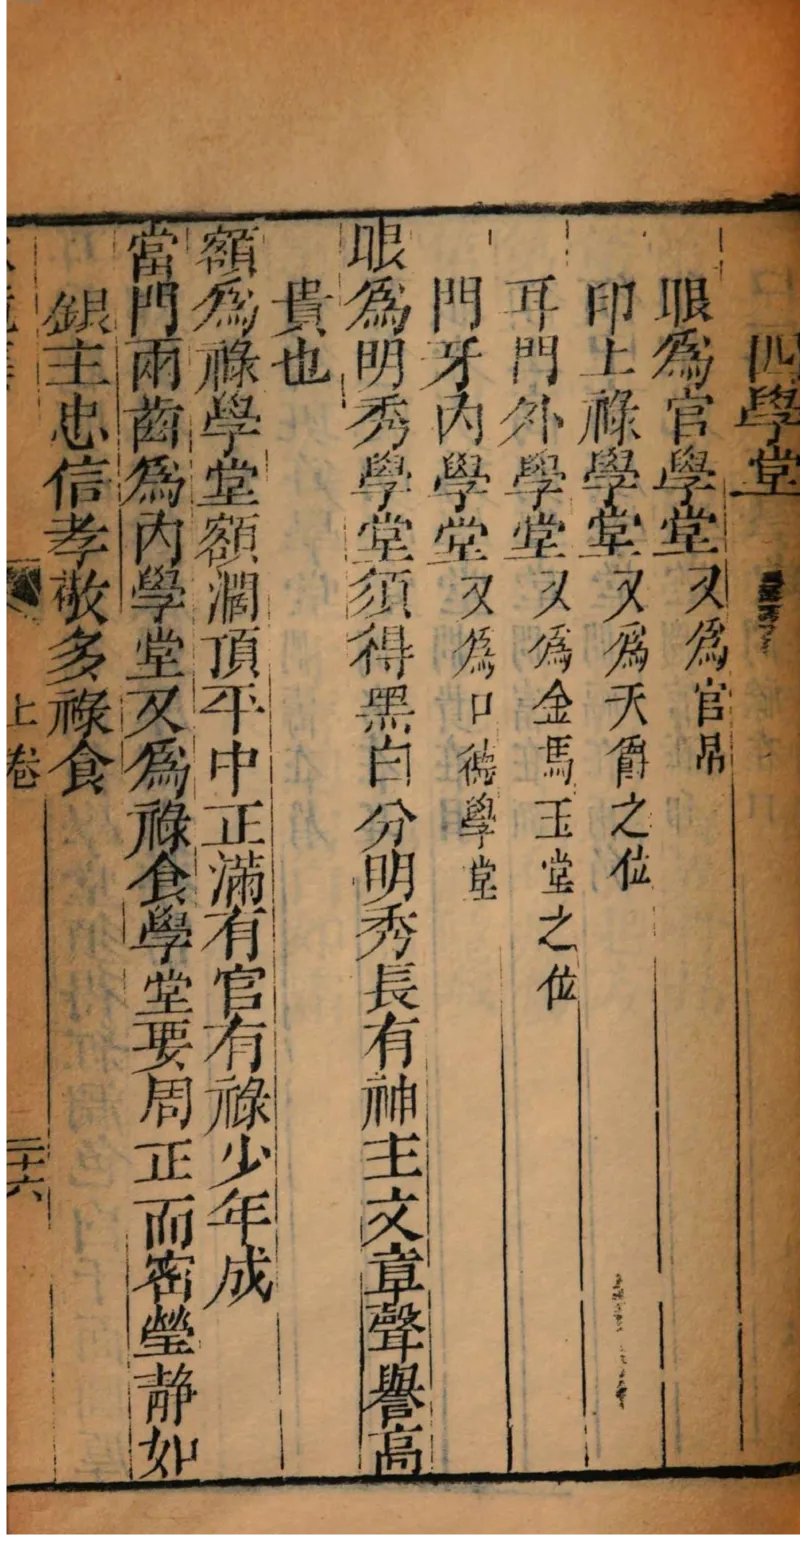 四學堂
眼為官學堂又為官帛
印上祿學堂又為天爵之位
耳門外學堂又為金馬玉堂之位
門牙內學堂又為口德學堂
眼為明秀學堂須得黑白分明秀長有神主文章聲譽高
貴也
額為祿學堂額濶頂平中正滿有官有祿少年成
當門兩齒為內學堂又為祿食學堂要周正而密瑩靜如
銀主忠信孝敬多祿食
上卷
二十六